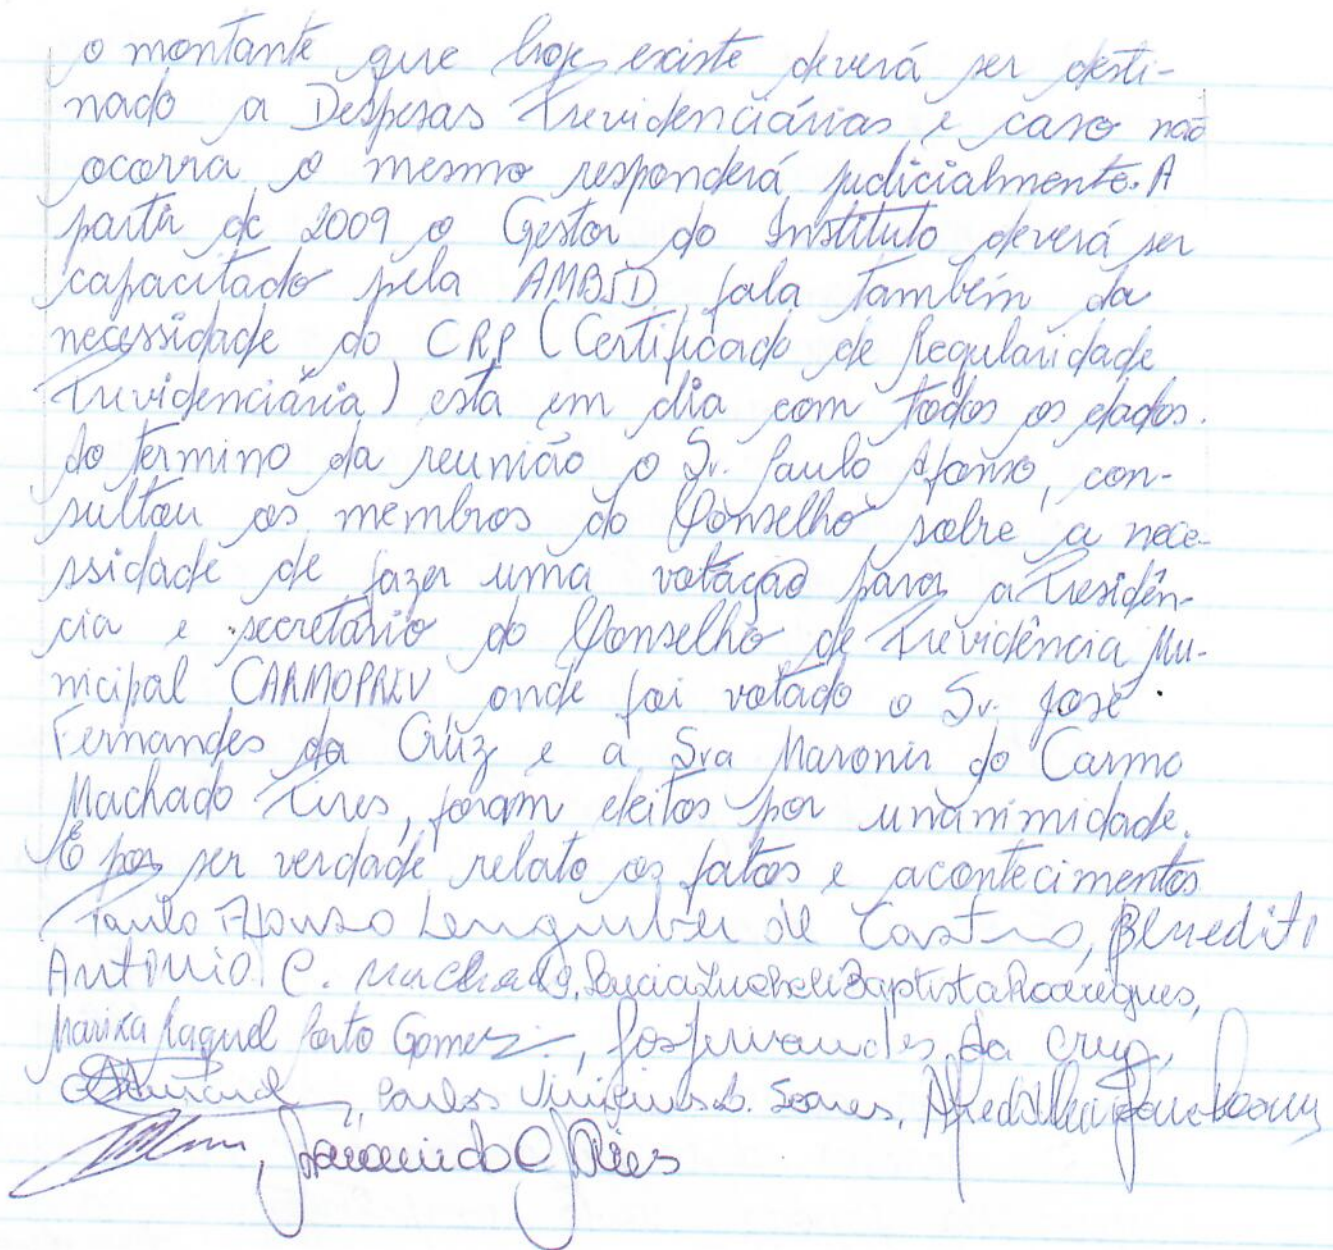 o montante que hoje existe deverá ser desti-
nado a Despesas Previdenciárias e caso não
ocorra o mesmo responderá judicialmente. A
partir de 2009 o Gestor do Instituto deverá ser
capacitado pela fala também da
necessidade do CRP (Certificado de Regularidade
Previdenciária) esta em dia com todos os dados.
Ao termino da reunião o Sr. Paulo Afonso, con-
sultou os membros do Conselho sobre a nece-
ssidade de fazer uma votação para a Presidên-
cia e secretário do Conselho de Previdência Mu-
nicipal CARMOPREV onde foi votado o Sr. José
Fernandes da Cruz e a Sra Maronir do Carmo
Machado Pires, foram eleitos por unanimidade.
E por ser verdade relato os fatos e acontecimentos
Paulo Afonso Lengruber de Castro, Benedito
Antônio C. Machado, Lucia Baptista Rodrigues,
Marixa Raquel Porto Gomes, José Fernandes da Cruz,
Carlos Vinicius Soares,
Maronir do C M Pires